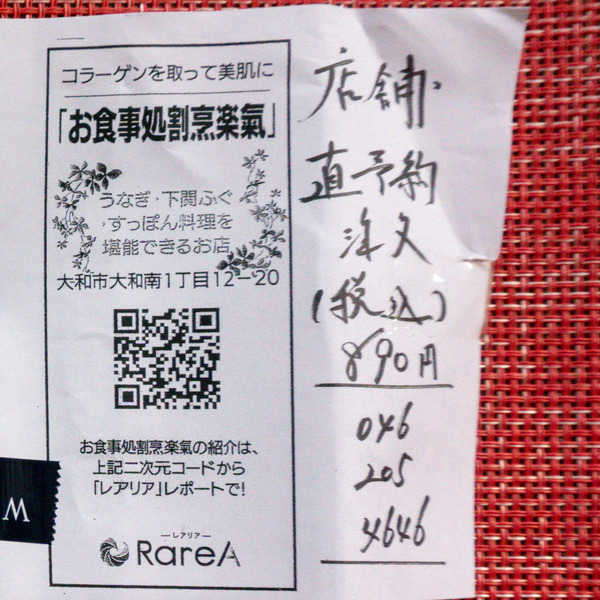 コラーゲンを取って美肌に
「お食事処割烹楽氣」
うなぎ・下関ふぐ
・すっぽん料理を
堪能できるお店
大和市大和南1丁目12−20
お食事処割烹楽氣の紹介は、
上記二次元コードから
「レアリア」レポートで!
―レアリア―
RareA
店舗
直予約
注文
(税込)
890円
046
205
4646
W